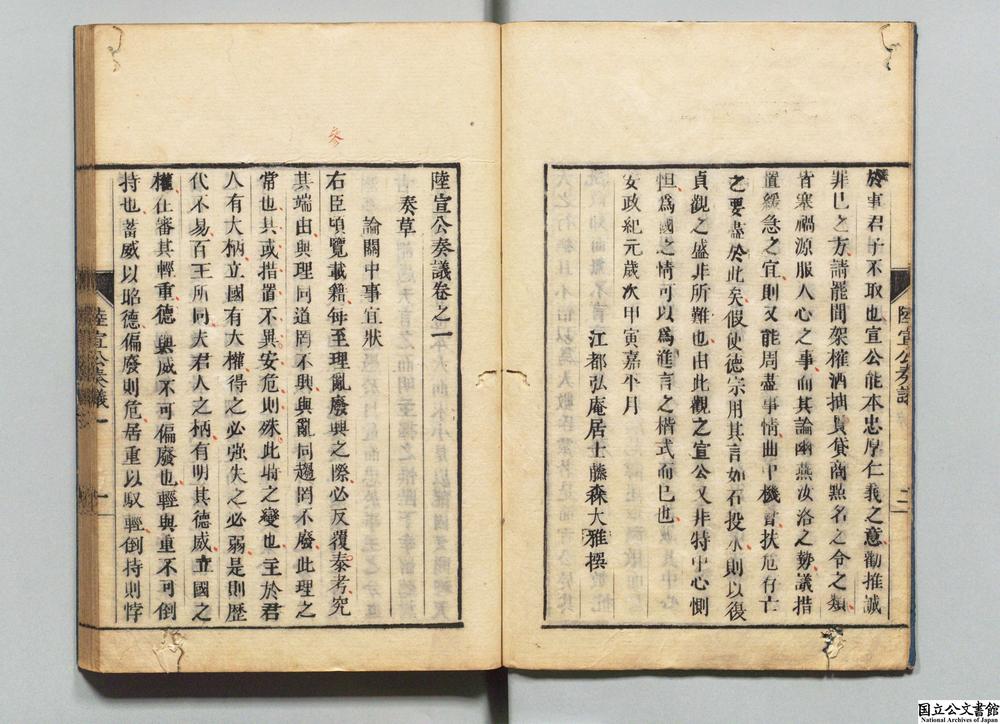 於事君子不取也宣公能本忠厚仁義之意勸推誠
罪已之方請罷間架榷酒抽貫貸商點名之令之類
皆寒禍源服人心之事而其論幽燕汝洛之勢議措
置緩急之宜則又能周盡事情曲中機會扶危存亡
之要盡於此矣假使德宗用其言如石投水則以復
貞觀之盛非所難也由此觀之宣公又非特中心惻
怛爲國之情可以爲進言之楷式而已也
安政紀元歲次甲寅嘉平月
江都弘庵居士藤森大雅撰
陸宣公奏議
二
參
陸宣公奏議卷之一
奏草
論關中事宜狀
右臣頃覽載籍每至理亂廢興之際必反覆參考究
其端由與理同道罔不興與亂同趣罔不廢此理之
常也其或措置不異安危則殊此時之變也至於君
人有大柄立國有大權得之必強失之必弱是則歷
代不易百王所同夫君人之柄有明其德威立國之
權在審其輕重德與威不可偏廢也輕與重不可倒
持也蓄威以昭德偏廢則危居重以馭輕倒持則悖
陸宣公奏議 一
一
国立公文書館
National Archives of Japan